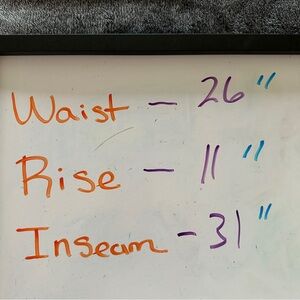 Waist - 26"
Rise - 11"
Inseam - 31"